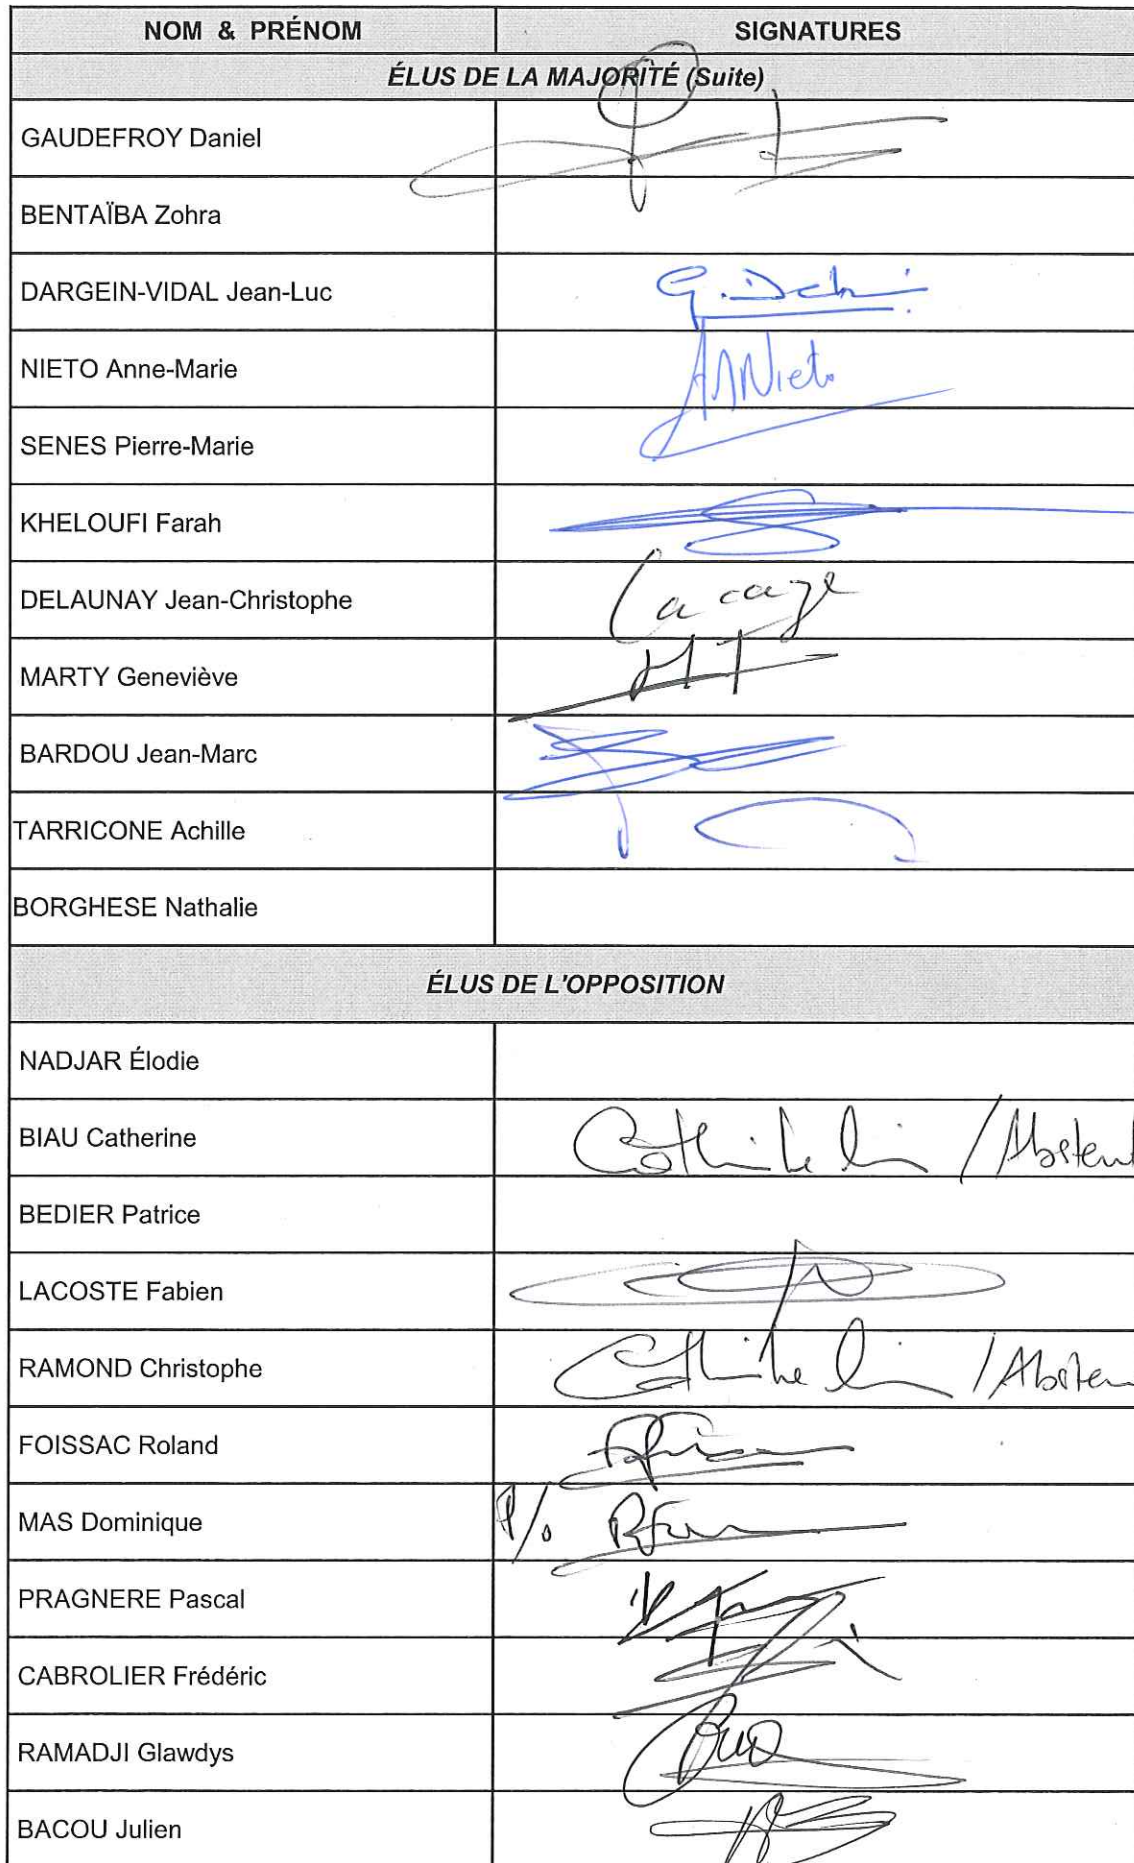 NOM & PRÉNOM SIGNATURES
ÉLUS DE LA MAJORITÉ (Suite)
GAUDEFROY Daniel
BENTAÏBA Zohra
DARGEIN-VIDAL Jean-Luc
NIETO Anne-Marie AMNieto
SENES Pierre-Marie
KHELOUFI Farah
DELAUNAY Jean-Christophe Lacaze
MARTY Geneviève
BARDOU Jean-Marc
TARRICONE Achille
BORGHESE Nathalie
ÉLUS DE L'OPPOSITION
NADJAR Élodie
BIAU Catherine
BEDIER Patrice
LACOSTE Fabien
RAMOND Christophe
FOISSAC Roland
MAS Dominique P/o
PRAGNERE Pascal
CABROLIER Frédéric
RAMADJI Glawdys
BACOU Julien